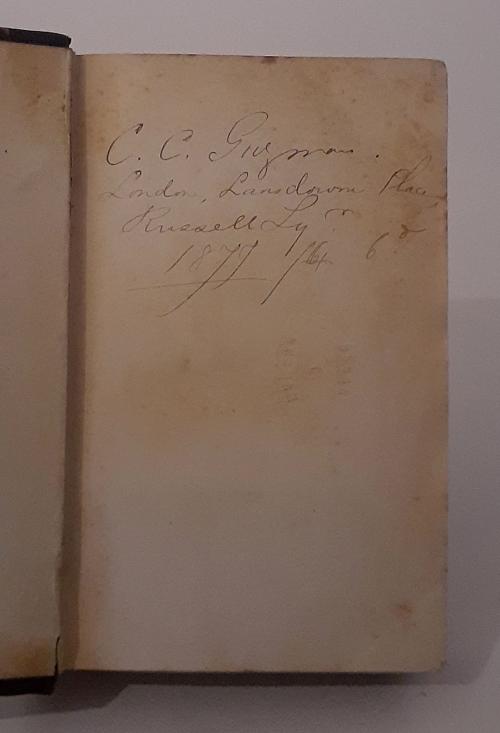 C. C. Guzman.
London, Lansdown Place,
Russell Sqr
1877 6d